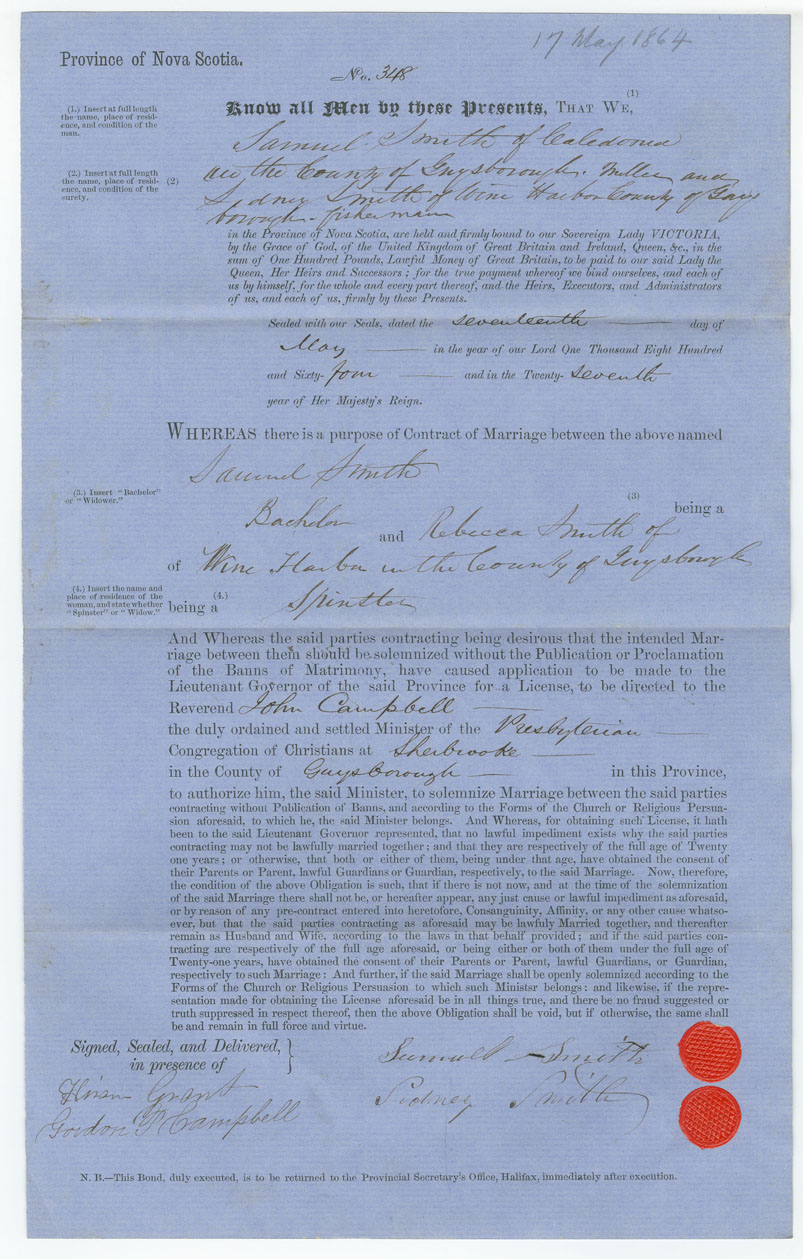 17 May 1864
Province of Nova Scotia.
No. 348
(1.) Insert at full length
the name, place of resid-
ence, and condition of the
man.
(1)
Know all Men by these Presents, THAT WE,
Samuel Smith of Caledonia
(2.) Insert at full length
the name, place of resid-
ence, and condition of the
surety.
(2)
in the County of Guysborough. Miller and
Sydney Smith of Wine Harbor County of Guys
borough. fisherman
in the Province of Nova Scotia, are held and firmly bound to our Sovereign Lady VICTORIA,
by the Grace of God, of the United Kingdom of Great Britain and Ireland, Queen, &c., in the
sum of One Hundred Pounds, Lawful Money of Great Britain, to be paid to our said Lady the
Queen, Her Heirs and Successors; for the true payment whereof we bind ourselves, and each of
us by himself, for the whole and every part thereof, and the Heirs, Executors, and Administrators
of us, and each of us, firmly by these Presents.
Sealed with our Seals, dated the seventeenth day of
May in the year of our Lord One Thousand Eight Hundred
and Sixty-four and in the Twenty-seventh
year of Her Majesty's Reign.
WHEREAS there is a purpose of Contract of Marriage between the above named
Samuel Smith
(3.) Insert "Bachelor"
or "Widower."
(3)
being a
Bachelor and Rebecca Smith of
of Wine Harbor in the County of Guysborough
(4.) Insert the name and
place of residence of the
woman, and state whether
"Spinster" or "Widow."
(4.)
being a Spinster
And Whereas the said parties contracting being desirous that the intended Mar-
riage between them should be solemnized without the Publication or Proclamation
of the Banns of Matrimony, have caused application to be made to the
Lieutenant Governor of the said Province for a License, to be directed to the
Reverend John Campbell
the duly ordained and settled Minister of the Presbyterian
Congregation of Christians at Sherbrooke
in the County of Guysborough in this Province,
to authorize him, the said Minister, to solemnize Marriage between the said parties
contracting without Publication of Banns, and according to the Forms of the Church or Religious Persua-
sion aforesaid, to which he, the said Minister belongs. And Whereas, for obtaining such License, it hath
been to the said Lieutenant Governor represented, that no lawful impediment exists why the said parties
contracting may not be lawfully married together; and that they are respectively of the full age of Twenty
one years; or otherwise, that both or either of them, being under that age, have obtained the consent of
their Parents or Parent, lawful Guardians or Guardian, respectively, to the said Marriage. Now, therefore,
the condition of the above Obligation is such, that if there is not now, and at the time of the solemnization
of the said Marriage there shall not be, or hereafter appear, any just cause or lawful impediment as aforesaid,
or by reason of any pre-contract entered into heretofore, Consanguinity, Affinity, or any other cause whatso-
ever, but that the said parties contracting as aforesaid may be lawfuly Married together, and thereafter
remain as Husband and Wife, according to the laws in that behalf provided; and if the said parties con-
tracting are respectively of the full age aforesaid, or being either or both of them under the full age of
Twenty-one years, have obtained the consent of their Parents or Parent, lawful Guardians, or Guardian,
respectively to such Marriage: And further, if the said Marriage shall be openly solemnized according to the
Forms of the Church or Religious Persuasion to which such Minister belongs: and likewise, if the repre-
sentation made for obtaining the License aforesaid be in all things true, and there be no fraud suggested or
truth suppressed in respect thereof, then the above Obligation shall be void, but if otherwise, the same shall
be and remain in full force and virtue.
Signed, Sealed, and Delivered,
in presence of
Samuel Smith
Hiram Grant
Sidney Smith
Gordon P Campbell
N. B.—This Bond, duly executed, is to be returned to the Provincial Secretary's Office, Halifax, immediately after execution.